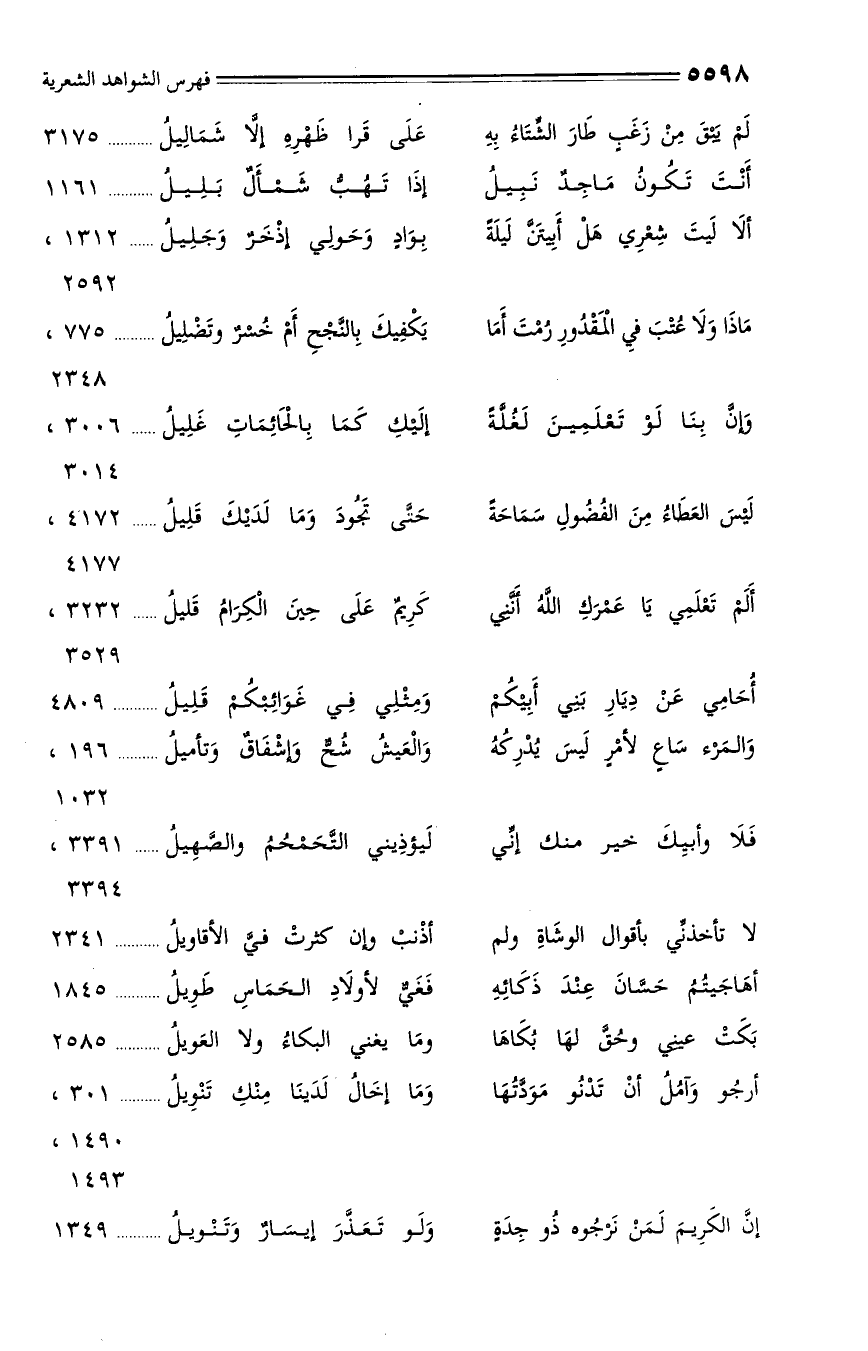 ٥٥٩٨ فهرس الشواهد الشعرية
لَمْ يَبْقَ مِنْ زَغَبٍ طَارَ الشِّتَاءُ بِهِ عَلَى قَرا ظَهْرِهِ إلَّا شَمَالِيلُ ........... ٣١٧٥
أَنْتَ تَكُونُ مَاجِدٌ نَبِيلُ إذَا تَهُبُّ شَمْأَلٌ بَلِيلُ ........... ١١٦١
ألَا لَيتَ شِعْرِي هَلْ أَبِيتَنَّ لَيلَةً بِوَادٍ وَحَولِي إذْخَرٌ وَجَلِيلُ ...... ١٣١٢ ،
٢٥٩٢
مَاذَا وَلَا عُتْبَ فِي الْمَقْدُورِ رُمْتَ أَمَا يَكْفِيكَ بِالنَّجْحِ أَمْ خُسْرٌ وتَضْلِيلُ .......... ٧٧٥ ،
٢٣٤٨
وَإنَّ بِنَا لَوْ تَعْلَمِينَ لَغُلَّةً إلَيْكِ كَمَا بِالْحَائِمَاتِ غَلِيلُ ...... ٣٠٠٦ ،
٣٠١٤
لَيْسَ العَطَاءُ مِنَ الفُضُولِ سَمَاحَةً حَتَّى تَجُودَ وَمَا لَدَيْكَ قَلِيلُ ...... ٤١٧٢ ،
٤١٧٧
أَلَمْ تَعْلَمِي يَا عَمْرَكِ اللَّهُ أَنَّنِي كَرِيمٌ عَلَى حِينَ الْكِرَامُ قَليلُ ...... ٣٢٣٢ ،
٣٥٢٩
أُحَامِي عَنْ دِيَارِ بَنِي أَبِيْكُمْ وَمِثْلِي فِي غَوَائِبْكُمْ قَلِيلُ ........... ٤٨٠٩
وَالمَرْء سَاعٍ لأمْرٍ لَيسَ يُدْرِكُهُ وَالْعَيشُ شُحٌّ وَإشْفَاقٌ وَتأميلُ .......... ١٩٦ ،
١٠٣٢
فَلَا وأبيِكَ خير منك إنِّي لَيؤذِيني التَّحَمْحُمُ والصَّهِيلُ ...... ٣٣٩١ ،
٣٣٩٤
لا تأخذنِّي بأقوال الوشَاةِ ولم أذْنبْ وإن كثرتْ فيَّ الأقاويلُ ........... ٢٣٤١
أهَاجَيتُمُ حَسَّانَ عِنْدَ ذَكَائِهِ فَغَيٌّ لأولَادِ الحَمَاسِ طَوِيلُ ........... ١٨٤٥
بَكَتْ عيني وحُقَّ لهَا بُكَاهَا ومَا يغني البكاءُ ولا العَويلُ ........... ٢٥٨٥
أرجُو وَآمُلُ أنْ تَدْنُو مَوَدَّتُهَا وَمَا إخَالُ لَدَينَا مِنْكِ تَنْوِيلُ .......... ٣٠١ ،
١٤٩٠ ،
١٤٩٣
إنَّ الكَرِيمَ لَمَنْ نَرْجُوه ذُو جِدَةٍ وَلَو تَعَذَّرَ إيسَارٌ وَتَنْويلُ ........... ١٣٤٩